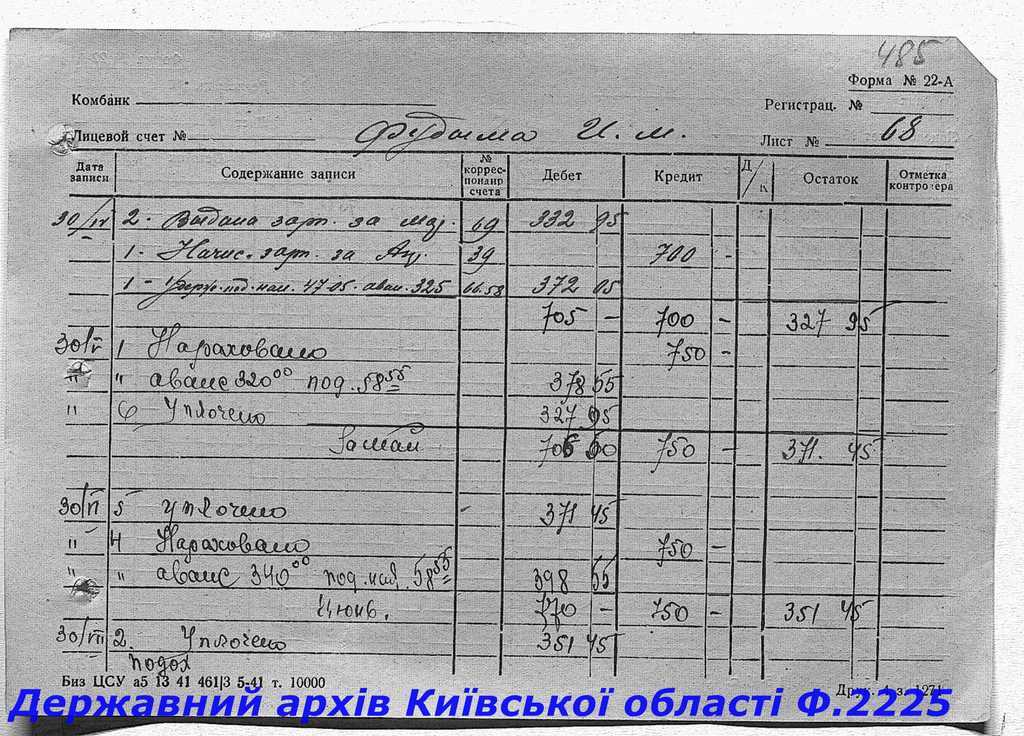 485
Форма № 22-А
Комбанк
Регистрац. №
Лицевой счет № Фудыма И. М.
Лист № 68
Дата записи Содержание записи № корреспондир счета Дебет Кредит Д/К Остаток Отметка контролера
30/IV 2. Выдана зарп. за мар. 69 332 95
1. Начис. зарп. за Апр. 39 700 -
1 - Удерж. под. нал. 47-05. аван. 325 66.58 372 05
705 - 700 - 327 95
30/V 1 Нараховано 750 -
" " аванс 320 00 под. 58 55 378 55
" 6 Уплочено 327 95
За май 706 50 750 - 371. 45
30/VI 5 Уплочено - 371 45
" 4 Нараховано 750 -
" " аванс 340 00 под. нал. 58 55 398 55
770 - 750 - 351 45
30/VII 2. Уплочено 351 45
подох
Биз ЦСУ а5 13 41 461|3 5-41 т. 10000
Друк. 4 з. 1271
Державний архів Київської області Ф.2225